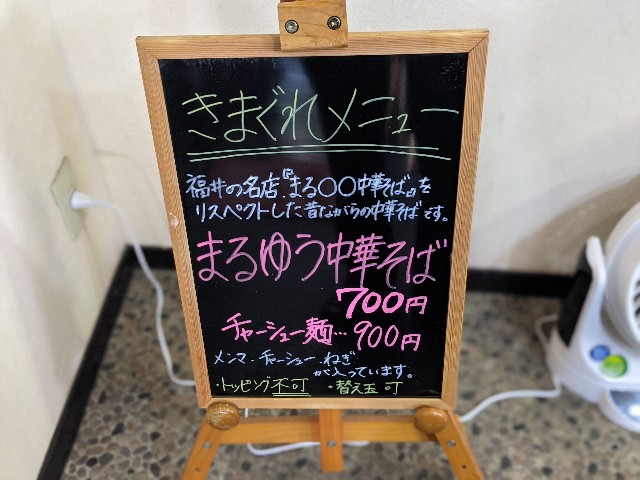 きまぐれメニュー
福井の名店『まる〇〇中華そば』を
リスペクトした昔ながらの中華そばです。
まるゆう中華そば
700円
チャーシュー麺…900円
メンマ・チャーシュー・ねぎ
が入っています。
・トッピング不可 ・替え玉可